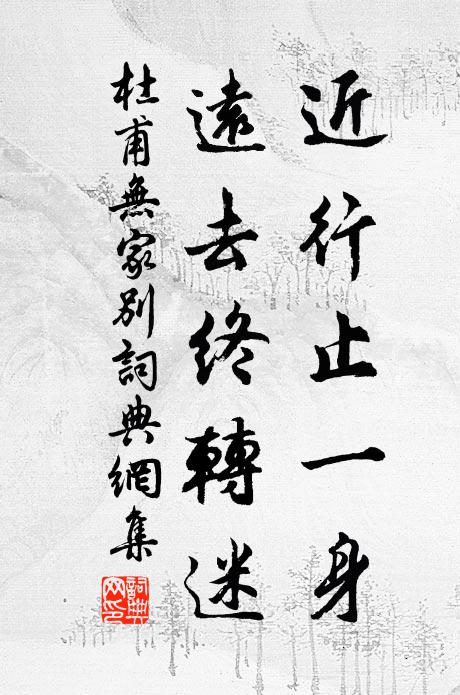 近行止一身
遠去終轉迷
杜甫無家別詞典網集
詞典